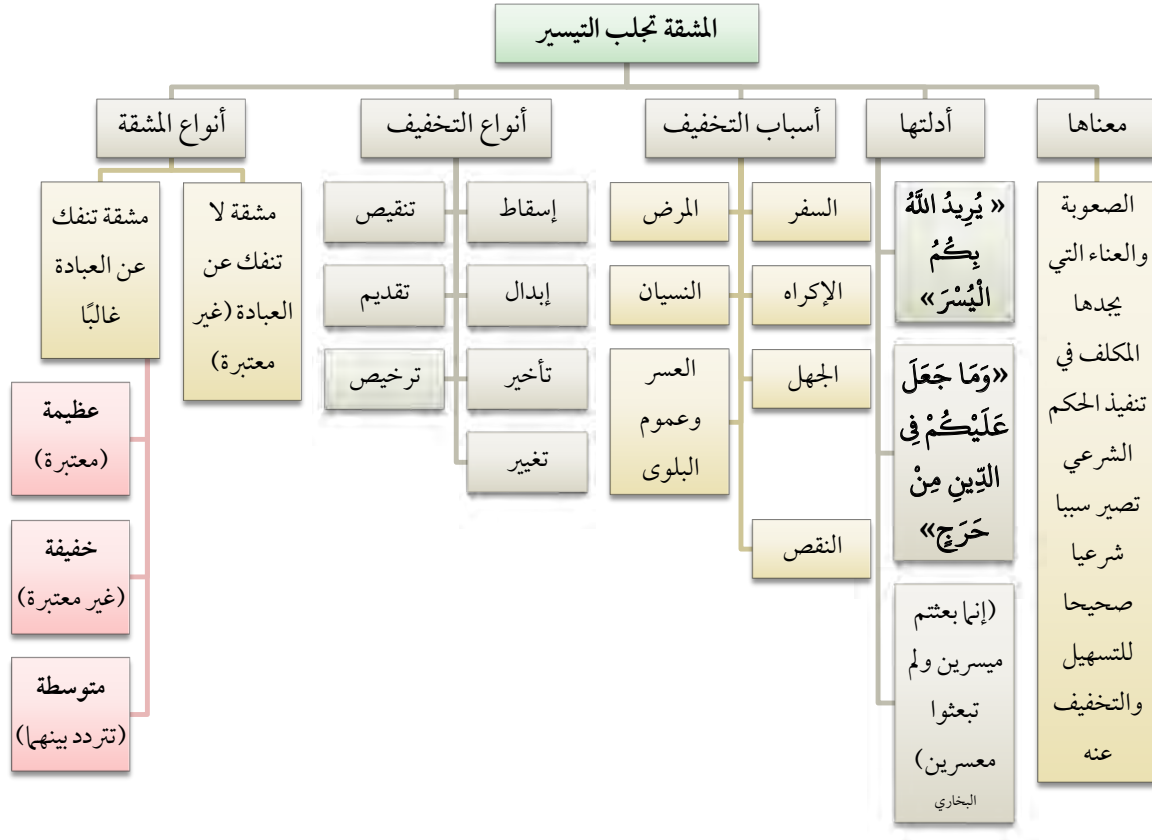 المشقة تجلب التيسير
معناها
الصعوبة
والعناء التي
يجدها
المكلف في
تنفيذ الحكم
الشرعي
تصير سببا
شرعيا
صحيحا
للتسهيل
والتخفيف
عنه
أدلتها
« يُرِيدُ اللَّهُ
بِكُمُ
الْيُسْرَ»
«وَمَا جَعَلَ
عَلَيْكُمْ فِي
الدِّينِ مِنْ
حَرَجٍ»
(إنما بعثتم
ميسرين ولم
تبعثوا
معسرين)
البخاري
أسباب التخفيف
السفر
المرض
الإكراه
النسيان
الجهل
العسر
وعموم
البلوى
النقص
أنواع التخفيف
إسقاط
تنقيص
إبدال
تقديم
تأخير
ترخيص
تغيير
أنواع المشقة
مشقة لا
تنفك عن
العبادة (غير
معتبرة)
مشقة تنفك
عن العبادة
غالبًا
عظيمة
(معتبرة)
خفيفة
(غير معتبرة)
متوسطة
(تتردد بينهما)